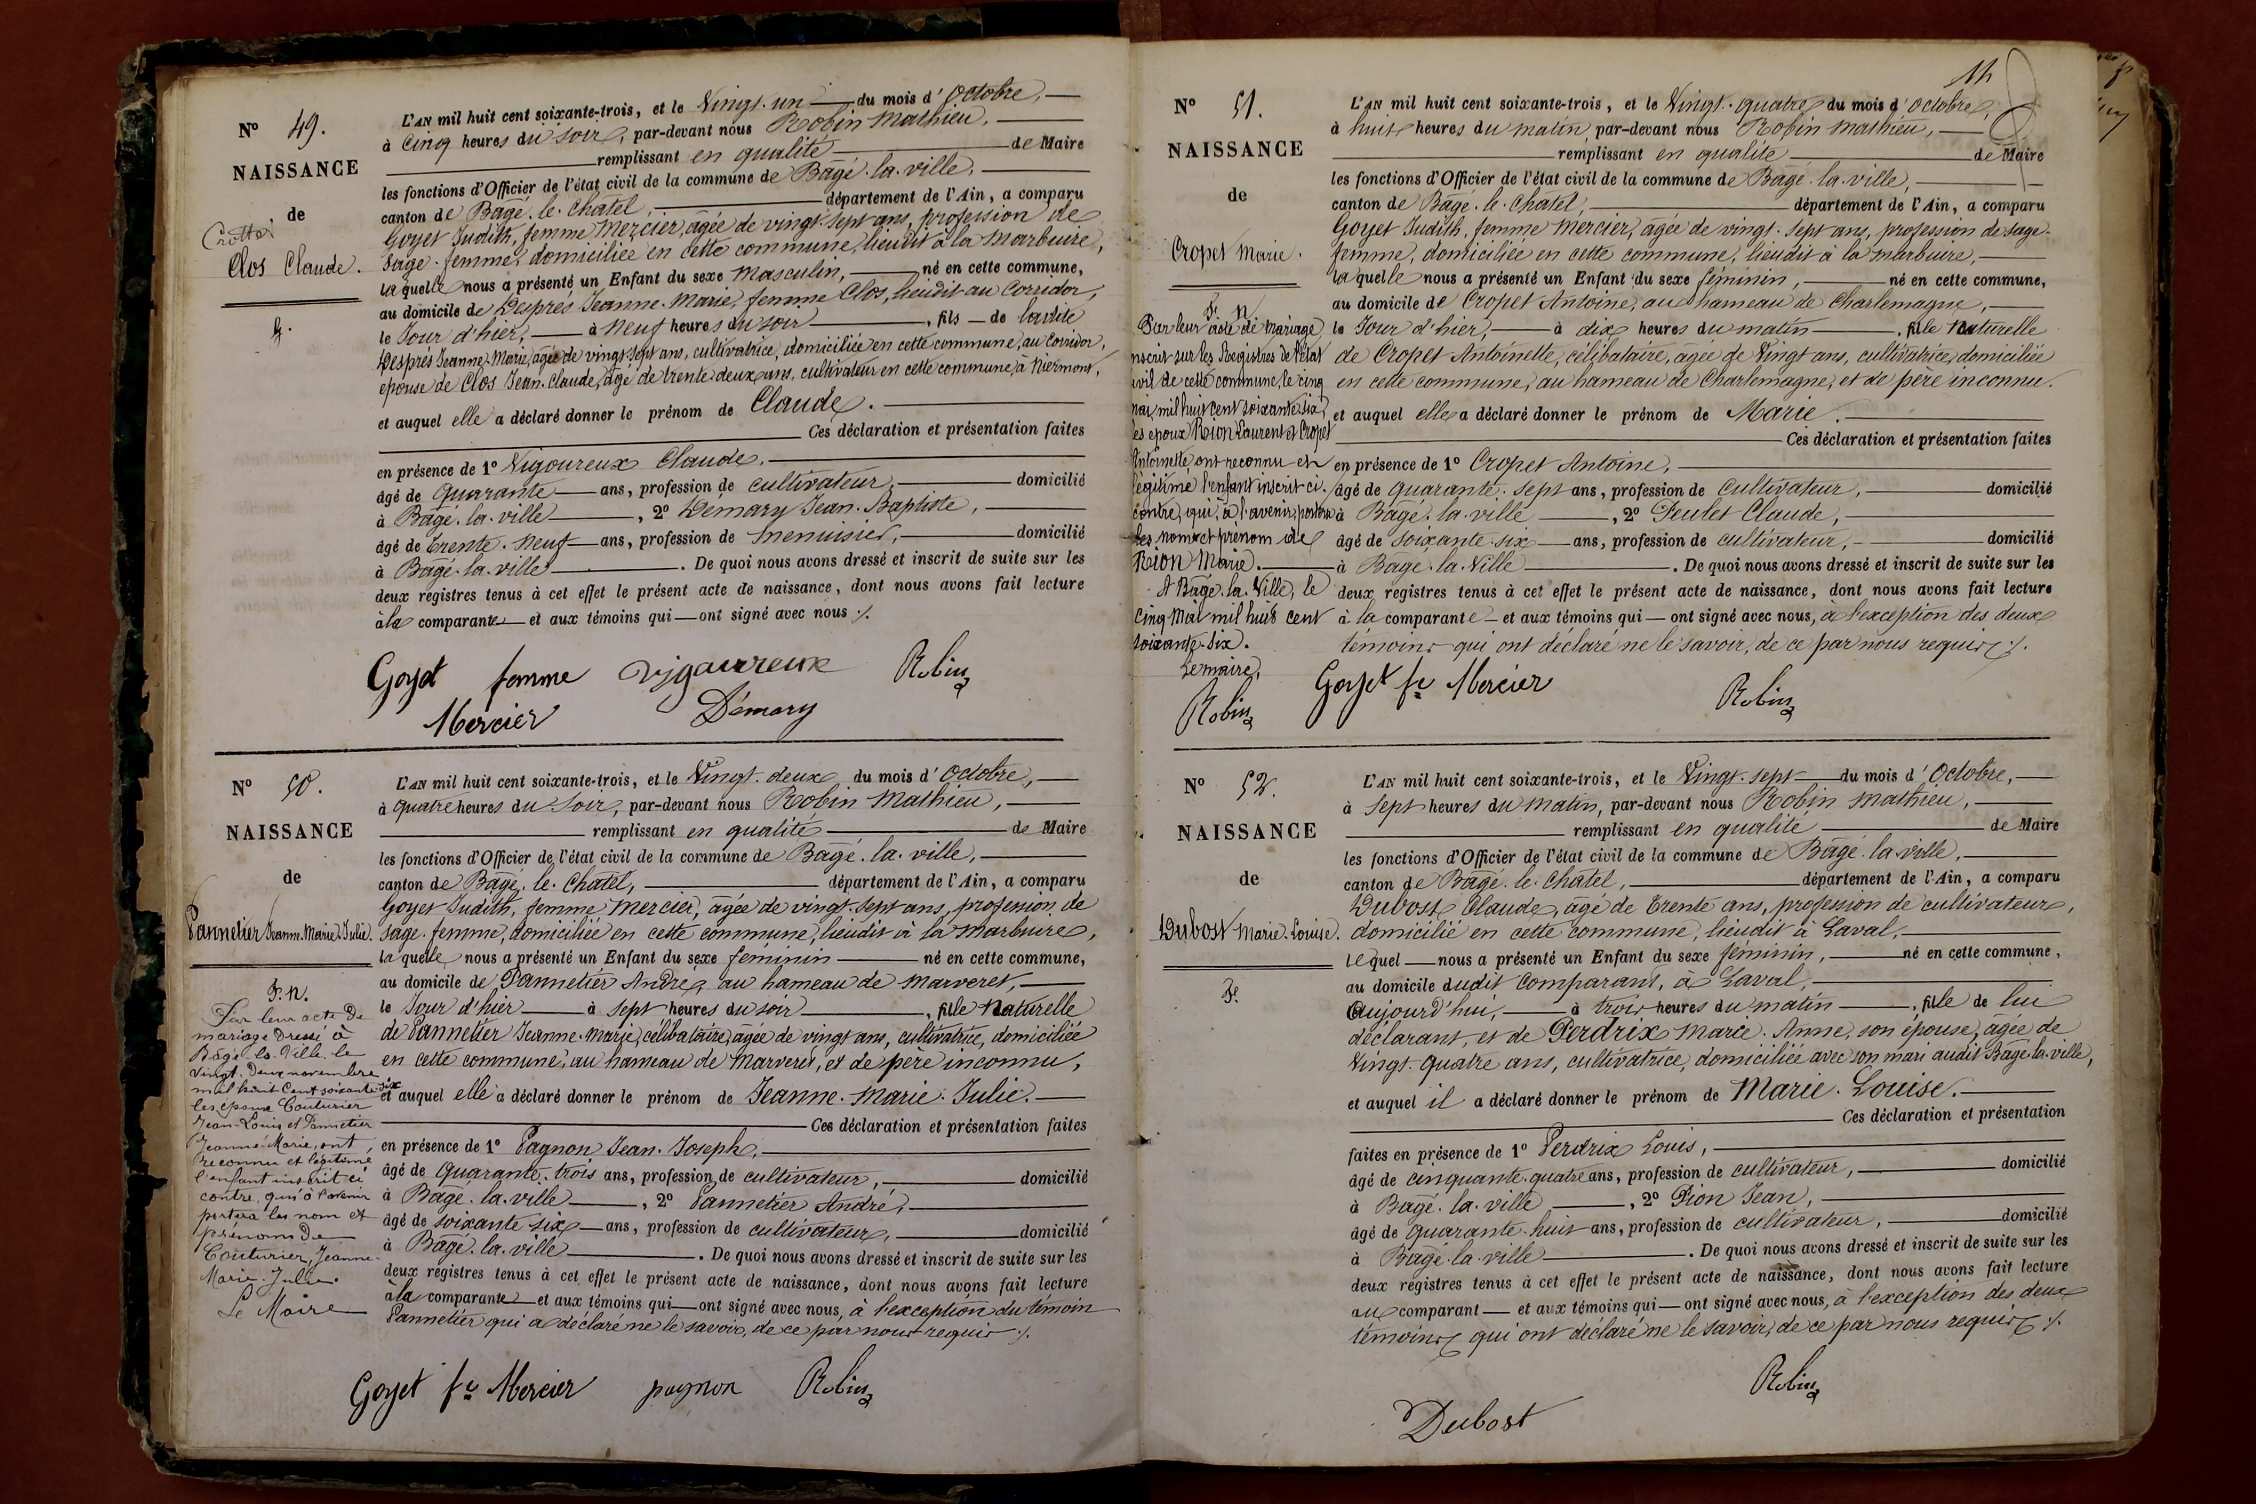 N° 49.
NAISSANCE
de
Crottet
Clos Claude.
L'AN mil huit cent soixante-trois, et le Vingt-un du mois d'Octobre,
à Cinq heures du soir, par-devant nous Robin Mathieu,
remplissant en qualité de Maire
les fonctions d'Officier de l'état civil de la commune de Bâgé-la-ville,
canton de Bâgé-le-Chatel, département de l'Ain, a comparu
Goyet Judith, femme Mercier, agée de vingt-sept ans, profession de
sage-femme, domiciliée en cette commune, lieudit à la Marbuire,
laquelle nous a présenté un Enfant du sexe masculin, né en cette commune,
au domicile de Després Jeanne-Marie, femme Clos, lieudit au Corridor,
le Jour d'hier, à neuf heures du soir, fils de ladite
Després Jeanne-Marie, agée de vingt-sept ans, cultivatrice, domiciliée en cette commune, au Corridor,
épouse de Clos Jean-Claude, âgé de trente-deux ans, cultivateur en cette commune, à Niermont,
et auquel elle a déclaré donner le prénom de Claude.
Ces déclaration et présentation faites
en présence de 1° Vigoureux Claude,
âgé de Quarante ans, profession de cultivateur, domicilié
à Bâgé-la-ville, 2° Démary Jean-Baptiste,
âgé de Trente-neuf ans, profession de menuisier, domicilié
à Bâgé-la-ville. De quoi nous avons dressé et inscrit de suite sur les
deux registres tenus à cet effet le présent acte de naissance, dont nous avons fait lecture
à la comparante et aux témoins qui ont signé avec nous ./.
Goyet femme vigoureux Robin
Mercier Démary
N° 50.
NAISSANCE
de
Pannetier Jeanne-Marie-Julie.
F. n.
Par leur acte de
mariage dressé à
Bâgé-la-Ville le
vingt-deux novembre
mil huit cent soixante-six
les époux Couturier
Jean-Louis et Pannetier
Jeanne-Marie, ont
reconnu et légitimé
l'enfant inscrit ci
contre, qui à l'avenir
portera les nom et
prénoms de
Couturier, Jeanne-
Marie-Julie.
Le Maire
L'AN mil huit cent soixante-trois, et le Vingt-deux du mois d'Octobre,
à quatre heures du soir, par-devant nous Robin Mathieu,
remplissant en qualité de Maire
les fonctions d'Officier de l'état civil de la commune de Bâgé-la-ville,
canton de Bâgé-le-Chatel, département de l'Ain, a comparu
Goyet Judith, femme Mercier, âgée de vingt-sept ans, profession de
sage-femme, domiciliée en cette commune, lieudit à la Marbuire,
laquelle nous a présenté un Enfant du sexe féminin né en cette commune,
au domicile de Pannetier André, au hameau de Marveret,
le Jour d'hier à sept heures du soir, fille Naturelle
de Pannetier Jeanne-Marie, célibataire, agée de vingt ans, cultivatrice, domiciliée
en cette commune, au hameau de Marveret, et de père inconnu,
et auquel elle a déclaré donner le prénom de Jeanne-Marie-Julie.
Ces déclaration et présentation faites
en présence de 1° Pagnon Jean-Joseph,
âgé de Quarante-trois ans, profession de cultivateur, domicilié
à Bâgé-la-ville, 2° Pannetier André,
âgé de soixante-six ans, profession de cultivateur, domicilié
à Bâgé-la-ville. De quoi nous avons dressé et inscrit de suite sur les
deux registres tenus à cet effet le présent acte de naissance, dont nous avons fait lecture
à la comparante et aux témoins qui ont signé avec nous, à l'exception du témoin
Pannetier qui a déclaré ne le savoir, de ce par nous requis ./.
Goyet fe Mercier pagnon Robin
N° 51.
NAISSANCE
de
Cropet Marie.
F. n.
Par leur acte de mariage
inscrit sur les Registres de l'état
civil de cette commune, le cinq
mai mil huit cent soixante-six,
les époux Rion Laurent et Cropet
Antoinette ont reconnu et
légitimé l'enfant inscrit ci-
contre, qui, à l'avenir, portera
les nom et prénom de
Rion Marie.
A Bâgé-la-Ville, le
cinq Mai mil huit cent
soixante-six.
Le maire,
Robin
L'AN mil huit cent soixante-trois, et le Vingt-quatre du mois d'Octobre,
à huit heures du matin, par-devant nous Robin Mathieu,
remplissant en qualité de Maire
les fonctions d'Officier de l'état civil de la commune de Bâgé-la-ville,
canton de Bâgé-le-Chatel, département de l'Ain, a comparu
Goyet Judith, femme Mercier, âgée de vingt-sept ans, profession de sage-
femme, domiciliée en cette commune, lieudit à la Marbuire,
laquelle nous a présenté un Enfant du sexe féminin, né en cette commune,
au domicile de Cropet Antoine, au hameau de Charlemagne,
le Jour d'hier, à dix heures du matin, fille Naturelle
de Cropet Antoinette, célibataire, âgée de Vingt ans, cultivatrice, domiciliée
en cette commune, au hameau de Charlemagne, et de père inconnu.
et auquel elle a déclaré donner le prénom de Marie.
Ces déclaration et présentation faites
en présence de 1° Cropet Antoine,
âgé de quarante-sept ans, profession de cultivateur, domicilié
à Bâgé-la-ville, 2° Feulet Claude,
âgé de soixante-six ans, profession de cultivateur, domicilié
à Bâgé-la-Ville. De quoi nous avons dressé et inscrit de suite sur les
deux registres tenus à cet effet le présent acte de naissance, dont nous avons fait lecture
à la comparante et aux témoins qui ont signé avec nous, à l'exception des deux
témoins qui ont déclaré ne le savoir, de ce par nous requis ./.
Goyet fe Mercier Robin
N° 52.
NAISSANCE
de
Dubost Marie-Louise.
L'AN mil huit cent soixante-trois, et le Vingt-sept du mois d'Octobre,
à sept heures du matin, par-devant nous Robin Mathieu,
remplissant en qualité de Maire
les fonctions d'Officier de l'état civil de la commune de Bâgé-la-ville,
canton de Bâgé-le-Chatel, département de l'Ain, a comparu
Dubost Claude, âgé de Trente ans, profession de cultivateur,
domicilié en cette commune, lieudit à Laval,
lequel nous a présenté un Enfant du sexe féminin, né en cette commune,
au domicile dudit comparant, à Laval,
Aujourd'hui, à trois heures du matin, fille de lui
déclarant, et de Perdrix Marie-Anne, son épouse, âgée de
Vingt-quatre ans, cultivatrice, domiciliée avec son mari audit Bâgé-la-ville,
et auquel il a déclaré donner le prénom de Marie-Louise.
Ces déclaration et présentation
faites en présence de 1° Perdrix Louis,
âgé de cinquante-quatre ans, profession de cultivateur, domicilié
à Bâgé-la-ville, 2° Pion Jean,
âgé de quarante-huit ans, profession de cultivateur, domicilié
à Bâgé-la-ville. De quoi nous avons dressé et inscrit de suite sur les
deux registres tenus à cet effet le présent acte de naissance, dont nous avons fait lecture
au comparant et aux témoins qui ont signé avec nous, à l'exception des deux
témoins qui ont déclaré ne le savoir, de ce par nous requis ./.
Robin
Dubost